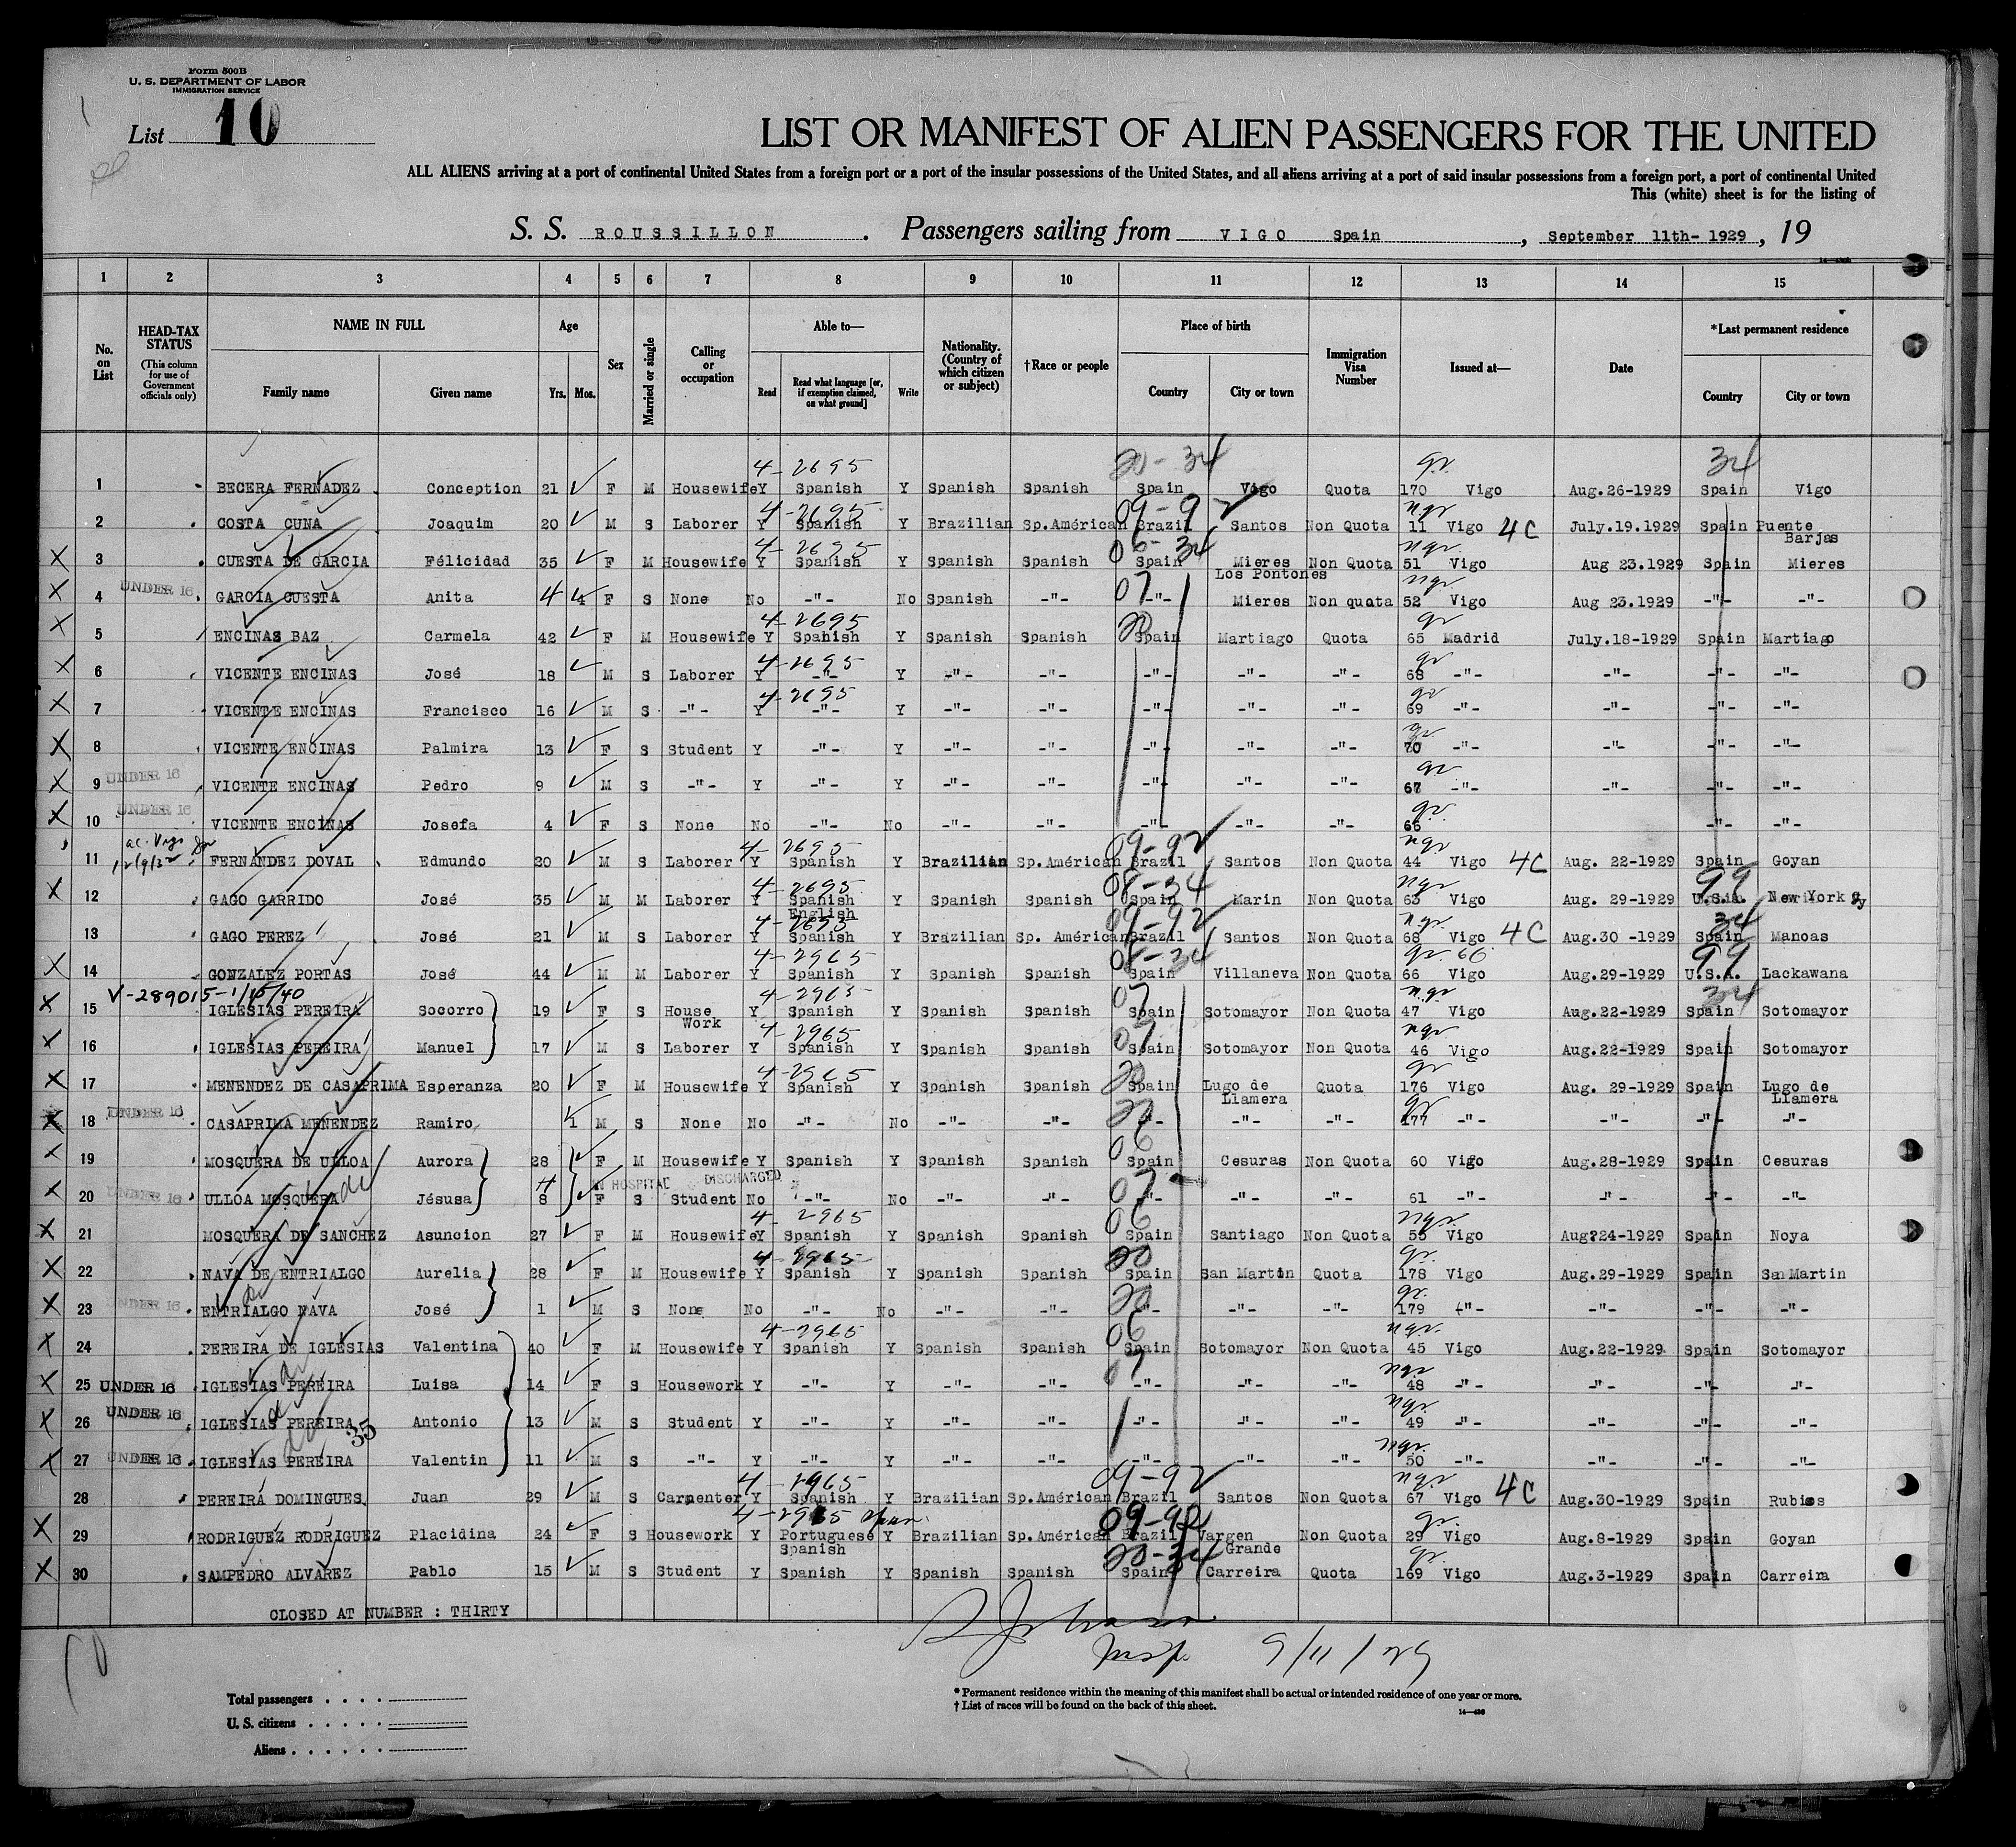 Form 500B
U. S. DEPARTMENT OF LABOR
IMMIGRATION SERVICE
List 10
LIST OR MANIFEST OF ALIEN PASSENGERS FOR THE UNITED
ALL ALIENS arriving at a port of continental United States from a foreign port or a port of the insular possessions of the United States, and all aliens arriving at a port of said insular possessions from a foreign port, a port of continental United
This (white) sheet is for the listing of
S. S. ROUSSILLON . Passengers sailing from VIGO Spain , September 11th- 1929 , 19
1 2 3 4 5 6 7 8 9 10 11 12 13 14 15
No. on List
HEAD-TAX STATUS (This column for use of Government officials only)
NAME IN FULL Family name Given name
Age Yrs. Mos.
Sex
Married or single
Calling or occupation
Able to— Read Read what language [or, if exemption claimed, on what ground] Write
Nationality. (Country of which citizen or subject)
†Race or people
Place of birth Country City or town
Immigration Visa Number
Issued at—
Date
*Last permanent residence Country City or town
4-2695 20-34 qr. 34
1 BECERA FERNADEZ Conception 21 F M Housewife Y Spanish Y Spanish Spanish Spain Vigo Quota 170 Vigo Aug.26-1929 Spain Vigo
4-2695 09-92 nqr
2 COSTA CUNA Joaquim 20 M S Laborer Y Spanish Y Brazilian Sp.Américan Brazil Santos Non Quota 11 Vigo 4C July.19.1929 Spain Puente Barjas
4-2695 06-34 nqr
X 3 CUESTA DE GARCIA Félicidad 35 F M Housewife Y Spanish Y Spanish Spanish Spain Mieres Non Quota 51 Vigo Aug 23.1929 Spain Mieres
Los Pontones
X 4 UNDER 16 GARCIA CUESTA Anita 4 4 F S None No -"- No Spanish -"- 07 -"- Mieres Non quota nqr 52 Vigo Aug 23.1929 -"- -"-
4-2695 20 qr
X 5 ENCINAS BAZ Carmela 42 F M Housewife Y Spanish Y Spanish Spanish Spain Martiago Quota 65 Madrid July.18-1929 Spain Martiago
4-2695 qr
X 6 VICENTE ENCINAS José 18 M S Laborer Y -"- Y -"- -"- -"- -"- -"- 68 -"- -"- -"- -"-
4-2695 qr
X 7 VICENTE ENCINAS Francisco 16 M S -"- Y -"- Y -"- -"- -"- -"- -"- 69 -"- -"- -"- -"-
qr
X 8 VICENTE ENCINAS Palmira 13 F S Student Y -"- Y -"- -"- -"- -"- -"- 70 -"- -"- -"- -"-
qr
X 9 UNDER 16 VICENTE ENCINAS Pedro 9 M S -"- Y -"- Y -"- -"- -"- -"- -"- 67 -"- -"- -"- -"-
qr.
X 10 UNDER 16 VICENTE ENCINAS Josefa 4 F S None No -"- No -"- -"- -"- -"- -"- 66 -"- -"-
4-2695 09-92 nqr
11 FERNANDEZ DOVAL Edmundo 20 M S Laborer Y Spanish Y Brazilian Sp.Américan Brazil Santos Non Quota 44 Vigo 4C Aug. 22-1929 Spain Goyan
4-2695 08-34 nqr 99
X 12 GAGO GARRIDO José 35 M M Laborer Y Spanish English Y Spanish Spanish Spain Marin Non Quota 63 Vigo Aug. 29-1929 U.S.A. New York
4-2695 09-92 nqr. 34
13 GAGO PEREZ José 21 M S Laborer Y Spanish Y Brazilian Sp. Américan Brazil Santos Non Quota 68 Vigo 4C Aug.30 -1929 Spain Manoas
4-2965 08-34 qr. 66 99
X 14 GONZALEZ PORTAS José 44 M M Laborer Y Spanish Y Spanish Spanish Spain Villaneva Non Quota 66 Vigo Aug.29-1929 U.S.A. Lackawana
V-289015-1/15/40 4-2965 07 nqr 34
X 15 IGLESIAS PEREIRA Socorro 19 F S House Work Y Spanish Y Spanish Spanish Spain Sotomayor Non Quota 47 Vigo Aug.22-1929 Spain Sotomayor
4-2965 07 nqr
X 16 IGLESIAS PEREIRA Manuel 17 M S Laborer Y Spanish Y Spanish Spanish Spain Sotomayor Non Quota 46 Vigo Aug.22-1929 Spain Sotomayor
4-2965 20 qr
X 17 MENENDEZ DE CASAPRIMA Esperanza 20 F M Housewife Y Spanish Y Spanish Spanish Spain Lugo de Llamera Quota 176 Vigo Aug. 29-1929 Spain Lugo de Llamera
20 qr
X 18 UNDER 16 CASAPRIMA MENENDEZ Ramiro 1 M S None No -"- No -"- -"- -"- -"- -"- 177 -"- -"- -"- -"-
06
X 19 MOSQUERA DE ULLOA Aurora 28 F M Housewife Y Spanish Y Spanish Spanish Spain Cesuras Non Quota 60 Vigo Aug.28-1929 Spain Cesuras
IN HOSPITAL DISCHARGED 07
X 20 UNDER 16 ULLOA MOSQUERA Jésusa 8 F S Student No -"- No -"- -"- -"- -"- -"- 61 -"- -"- -"- -"-
4-2965 06 nqr
X 21 MOSQUERA DE SANCHEZ Asuncion 27 F M Housewife Y Spanish Y Spanish Spanish Spain Santiago Non Quota 55 Vigo Aug?24-1929 Spain Noya
4-2965 20 qr.
X 22 NAVA DE ENTRIALGO Aurelia 28 F M Housewife Y Spanish Y Spanish Spanish Spain San Martin Quota 178 Vigo Aug.29-1929 Spain San Martin
20 qr.
X 23 UNDER 16 ENTRIALGO NAVA José 1 M S None No -"- No -"- -"- -"- -"- -"- 179 -"- -"- -"- -"-
4-2965 06 nqr.
X 24 PEREIRA DE IGLESIAS Valentina 40 F M Housewife Y Spanish Y Spanish Spanish Spain Sotomayor Non Quota 45 Vigo Aug.22-1929 Spain Sotomayor
07 nqr
X 25 UNDER 16 IGLESIAS PEREIRA Luisa 14 F S Housework Y -"- Y -"- -"- -"- -"- -"- 48 -"- -"- -"- -"-
nqr.
X 26 UNDER 16 IGLESIAS PEREIRA Antonio 13 M S Student Y -"- Y -"- -"- -"- -"- -"- 49 -"- -"- -"- -"-
35 nqr.
X 27 UNDER 16 IGLESIAS PEREIRA Valentin 11 M S -"- Y -"- Y -"- -"- -"- -"- -"- 50 -"- -"- -"- -"-
4-2965 09-92 nqr
28 PEREIRA DOMINGUES Juan 29 M S Carpenter Y Spanish Y Brazilian Sp.Américan Brazil Santos Non Quota 67 Vigo 4C Aug.30-1929 Spain Rubios
4-2965 09-92 qr.
X 29 RODRIGUEZ RODRIGUEZ Placidina 24 F S Housework Y Portuguese Spanish Y Brazilian Sp.Américan Brazil Vargen Grande Non Quota 29 Vigo Aug.8-1929 Spain Goyan
20-34 qr.
X 30 SAMPEDRO ALVAREZ Pablo 15 M S Student Y Spanish Y Spanish Spanish Spain Carreira Quota 169 Vigo Aug.3-1929 Spain Carreira
CLOSED AT NUMBER : THIRTY
Insp. 9/11/29
Total passengers . . . .
U. S. citizens . . . . .
Aliens . . . . . .
* Permanent residence within the meaning of this manifest shall be actual or intended residence of one year or more.
† List of races will be found on the back of this sheet.